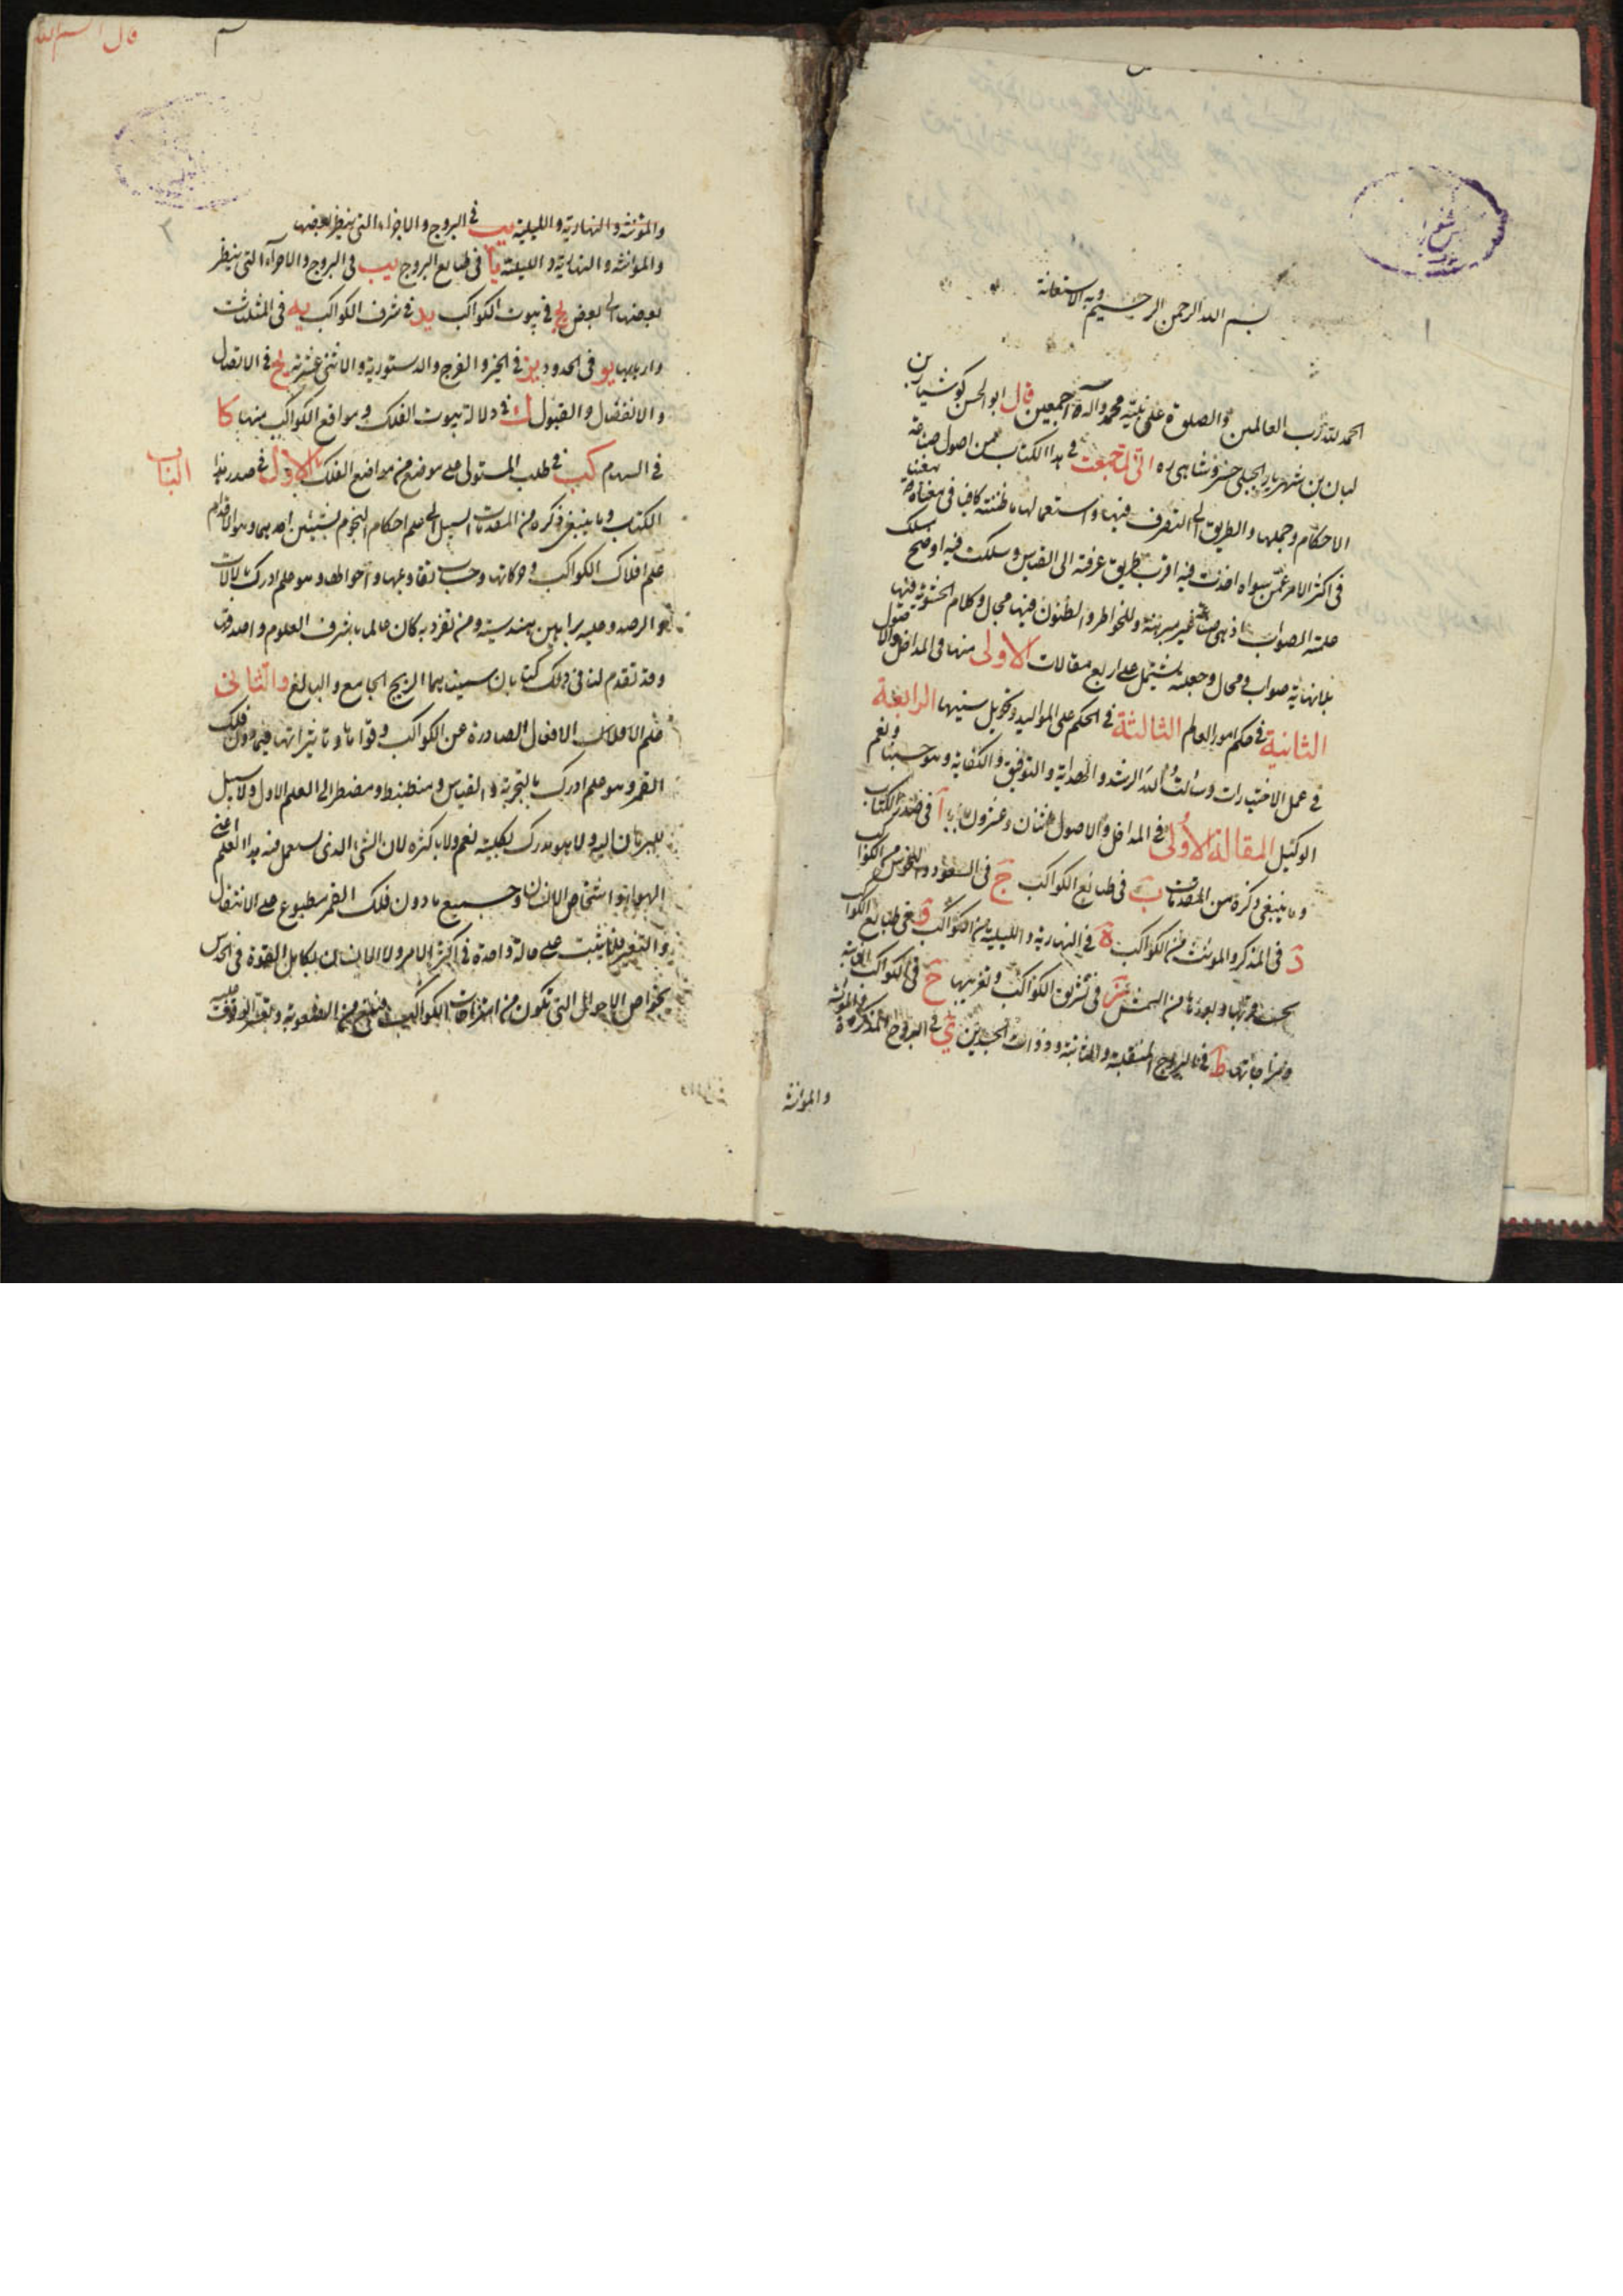 بسم الله الرحمن الرحيم وبه الاستعانة
الحمد لله رب العالمين والصلوة على نبيه محمد وآله اجمعين قال ابو الحسن كوشيار بن
لبان بن شهريار الجيلى انى لما جمعت فى هذا الكتاب من اصول صناعة
الاحكام وجملها والطريق الى التصرف فيها واستعمالها ما ظننته كافيا فى معناه
فى اكثر الامر عمن سواه اخذت فيه اقرب طريق عرفته الى القياس وسلكت فيه اوضح مسلك
علمته الصواب اذ هى صناعة غير مبرهنة وللخواطر والظنون فيها مجال وكلام الحشوية فيها
بلا نهاية صواب ومحال وجعلته يشتمل على اربع مقالات الاولى منها فى المداخل والاصول
الثانية فى حكم امور العالم الثالثة فى الحكم على المواليد وتحويل سنيها الرابعة
فى عمل الاختيارات وسألت الله الرشد والهداية والتوفيق والكفاية وهو حسبنا ونعم
الوكيل المقالة الاولى فى المداخل والاصول اثنان وعشرون بابا آ فى صدر الكتاب
وما ينبغى ذكره من المقدمات ب فى طبائع الكواكب ج فى السعود والنحوس من الكواكب
د فى المذكر والمونث من الكواكب ه فى النهارية والليلية من الكواكب و فى طبائع الكواكب
بحسب قربها وبعدها من الشمس ز فى تشريق الكواكب وتغريبها ح فى الكواكب الثابتة
ومزاجاتها ط فى البروج المنقلبة والثابتة وذوات الجسدين ي فى البروج المذكرة والمونثة
والمونثة
والمونثة والنهارية والليلية يب فى البروج والاجزاء التى ينظر بعضها
والمونثة والنهارية والليلية يا فى طبايع البروج يب فى البروج والاجزاء التى ينظر
بعضها الى بعض يج فى بيوت الكواكب يد فى شرف الكواكب يه فى المثلثات
واربابها يو فى الحدود يز فى الحيز والفرح والدستورية والاثنى عشرية يح فى الاتصال
والانفصال والقبول ك فى دلالة بيوت الفلك ومواقع الكواكب منها كا
فى السهام كب فى طلب المستولى على موضع من مواضع الفلك الباب الاول فى صدر هذا
الكتاب وما ينبغى ذكره من المقدمات السبيل الى علم احكام النجوم بشيئين احدهما وهو الاقدم
علم افلاك الكواكب وحركاتها وحساب تقاويمها واحوالها وهو علم ادرك بالالات
والرصد وعليه براهين هندسية ومن تفرد به كان عالما باشرف العلوم واصدق
وقد تقدم لنا فى ذلك كتابان سميناهما الزيج الجامع والبالغ والثانى
علم الافعال الصادرة عن الكواكب وقواها وتاثيراتها فيما دون فلك
القمر وهو علم ادرك بالتجربة والقياس ومضطر الى العلم الاول ولا سبيل
للبرهان اليه ولا هو مدرك بكليته نعم ولا باكثره لان الشئ الذى يستعمل فيه هذا العلم اعنى
الهواء واشخاص الانسان وجميع ما دون فلك القمر مطبوع على الانتقال
والتغير فلا يثبت على حالة واحدة فى اكثر الامر ولا الانسان بكامل القوة فى الحدس
بخواص الاحوال التى تكون من امتزاجات الكواكب